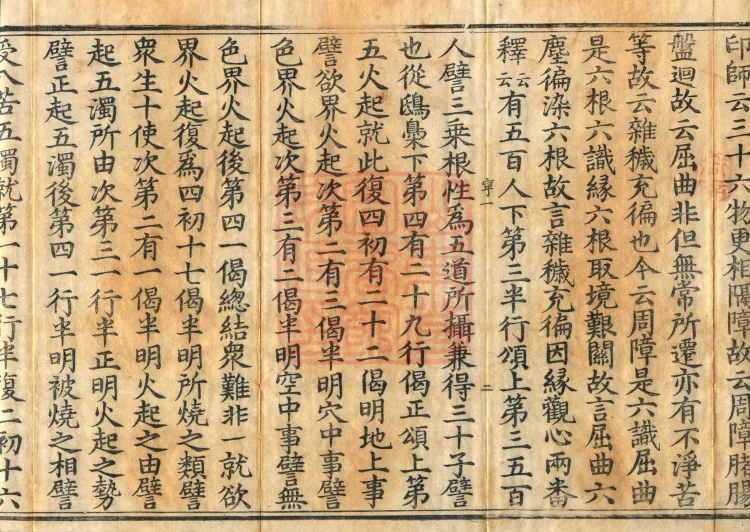 印師云三十六物更相隔障故云周障腨腸
盤迴故云屈曲非但無常所遷亦有不淨苦
等故云雜穢充徧也今云周障是六識屈曲
是六根六識緣六根取境艱關故言屈曲六
塵徧染六根故言雜穢充徧因緣觀心兩番
釋云云有五百人下第三半行頌上第三五百
寧一 二
人譬三乘根性為五道所攝兼得三十子譬
也從鴟梟下第四有二十九行偈正頌上第
五火起就此復四初有二十二偈明地上事
譬欲界火起次第二有三偈半明穴中事譬
色界火起次第三有二偈半明空中事譬無
色界火起後第四一偈總結眾難非一就欲
界火起復為四初十七偈半明所燒之類譬
眾生十使次第二有一偈半明火起之由譬
起五濁所由次第三一行半正明火起之勢
譬正起五濁後第四一行半明被燒之相譬
受八苦五濁就第一十七行半復二初十六